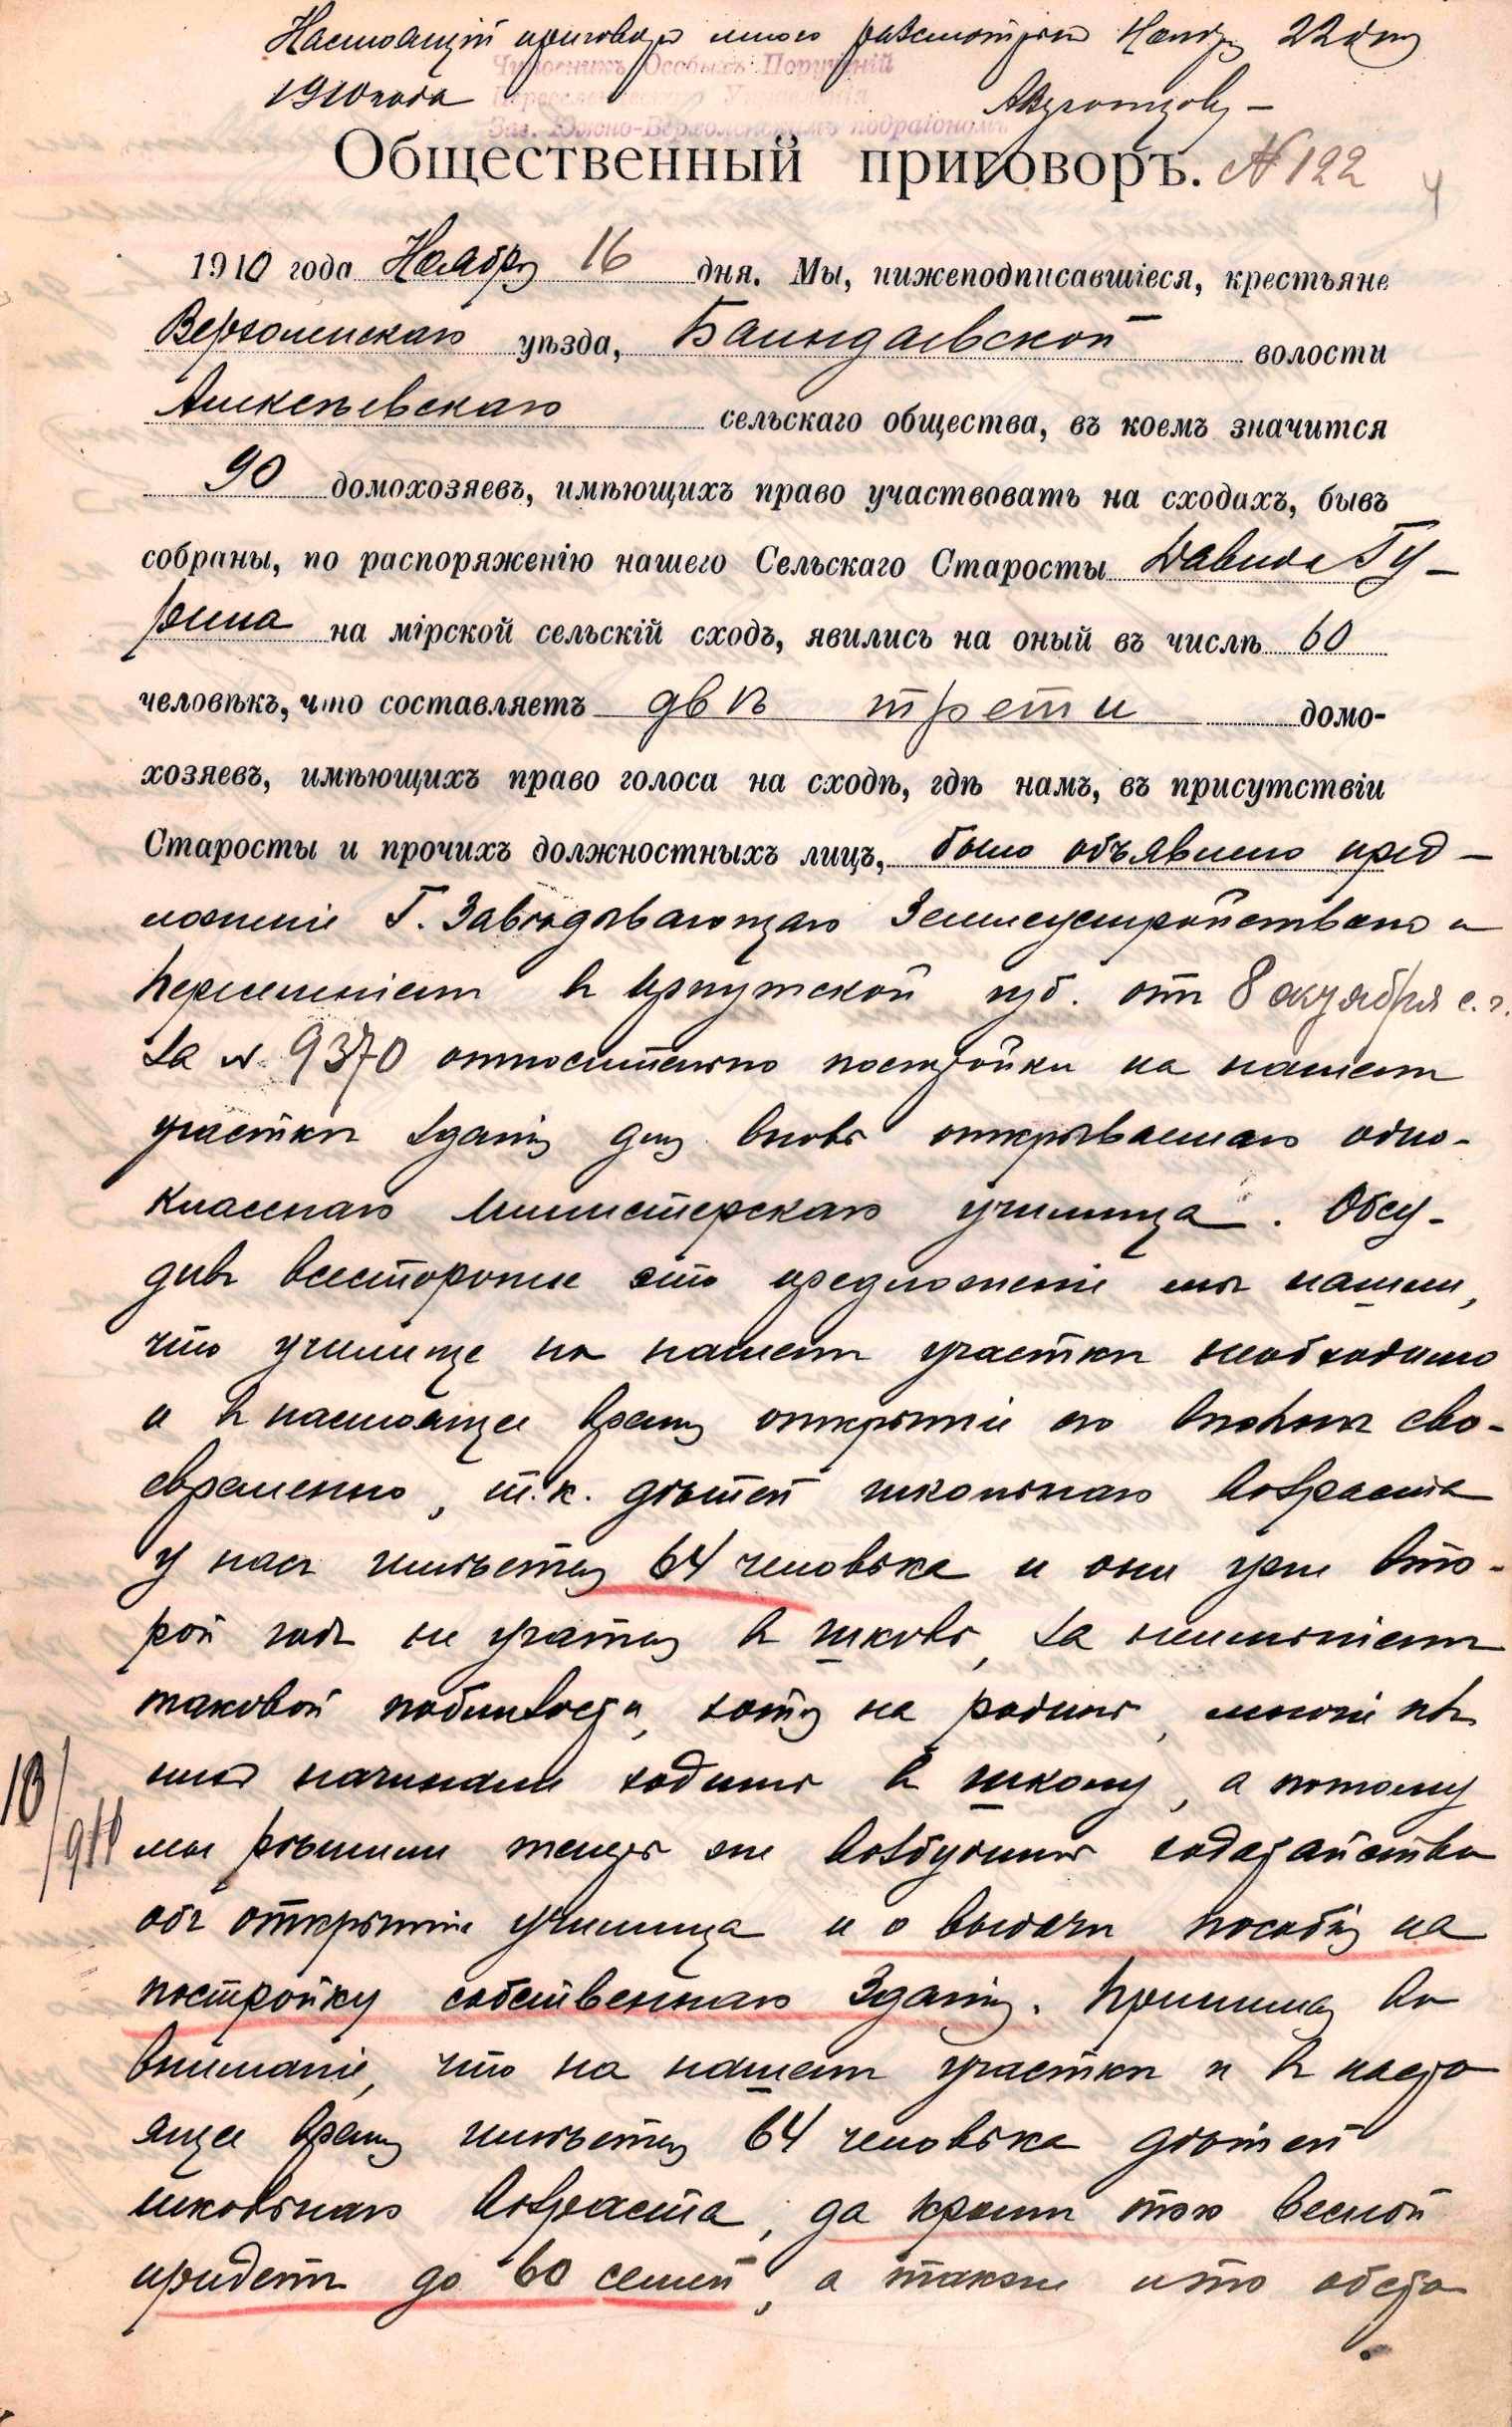 Настоящій приговоръ мною разсмотрѣнъ Ноября 22 дня
1910 года
Чиновникъ Особыхъ Порученій
Переселенческаго Управленія
Зав. Южно-Верхоленскимъ подраіономъ
Общественный приговоръ. № 122
4
1910 года Ноября 16 дня. Мы, нижеподписавшіеся, крестьяне
Верхоленскаго уѣзда, Баяндаевской волости
Алексѣевскаго сельскаго общества, въ коемъ значится
90 домохозяевъ, имѣющихъ право участвовать на сходахъ, бывъ
собраны, по распоряженію нашего Сельскаго Старосты Давида Гу-
рина на мірской сельскій сходъ, явились на оный въ числѣ 60
человѣкъ, что составляетъ двѣ трети домо-
хозяевъ, имѣющихъ право голоса на сходѣ, гдѣ намъ, въ присутствіи
Старосты и прочихъ должностныхъ лицъ, было объявлено пред-
ложеніе Г. Завѣдывающаго Землеустройствомъ и
Переселеніемъ въ Иркутской губ. от 8 октября с. г.
за № 9370 относительно постройки на нашемъ
участкѣ зданія для вновь открываемаго одно-
класснаго Министерскаго училища. Обсу-
дивъ всесторонне это предложеніе мы нашли,
что училище на нашемъ участкѣ необходимо
и въ настоящее время открытіе его вполнѣ сво-
евременно, т.к. дѣтей школьнаго возраста
у насъ имѣется 64 человѣка и они уже вто-
рой годъ не учатся въ школѣ, за неимѣніемъ
таковой поблизости, хотя на родинѣ, многіе изъ
нихъ начинали ходить въ школу, а потому
мы рѣшили теперь же возбудить ходатайство
объ открытіи училища и о выдачѣ пособія на
постройку собственнаго зданія. Принимая во
вниманіе, что на нашемъ участкѣ и въ насто
ящее время имѣется 64 человѣка дѣтей
школьнаго возраста, да кромѣ того весной
придетъ до 60 семей, а также и то обсто
10/910